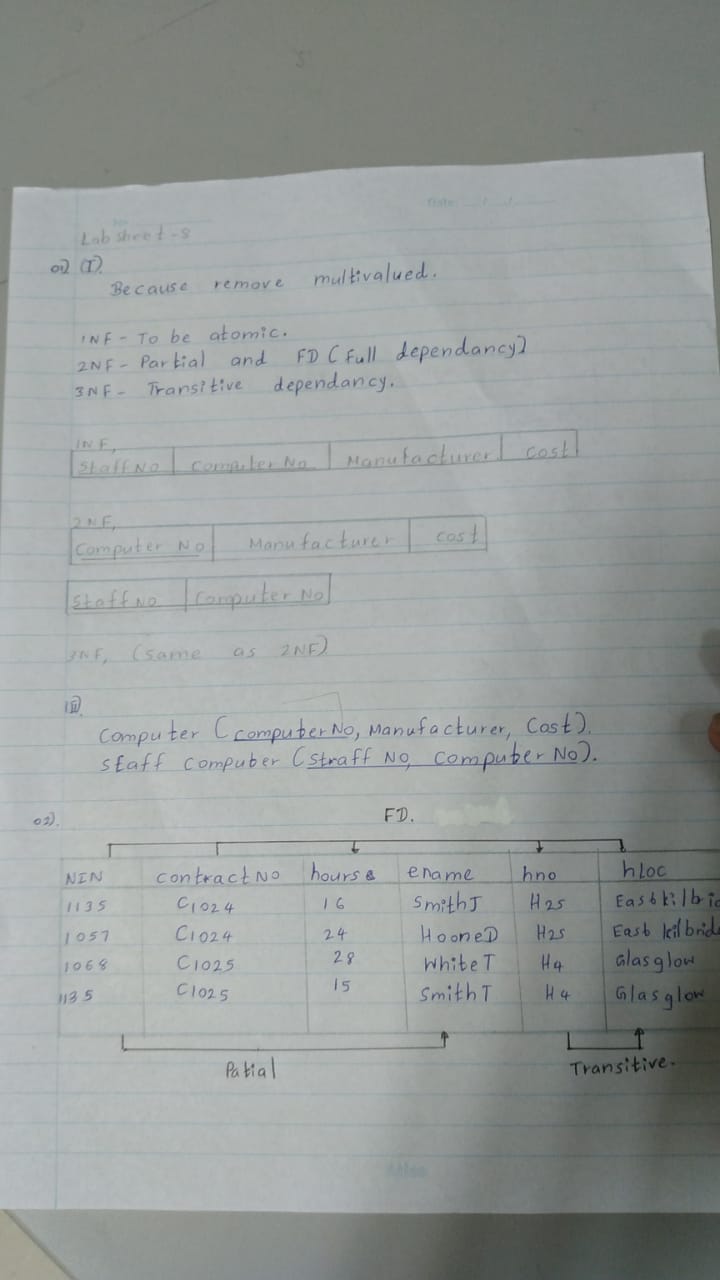 Date:
No
Lab sheet-8
01) (I).
Because remove multivalued.
1NF - To be atomic.
2NF - Partial and FD (Full dependancy)
3NF - Transitive dependancy.
1NF,
Staff No Computer No Manufacturer Cost
2NF,
Computer No Manufacturer cost
Staff No Computer No
3NF, (same as 2NF)
Computer (computer No, Manufacturer, Cost).
Staff computer (Straff No, computer No).
02). FD.
NIN contract No hours ename hno hLoc
1135 C1024 16 SmithJ H25 East kilbrid
1057 C1024 24 HooneD H25 East kilbride
1068 C1025 28 White T H4 Glasglow
1135 C1025 15 Smith T H4 Glasglow
Patial Transitive.
Atlas